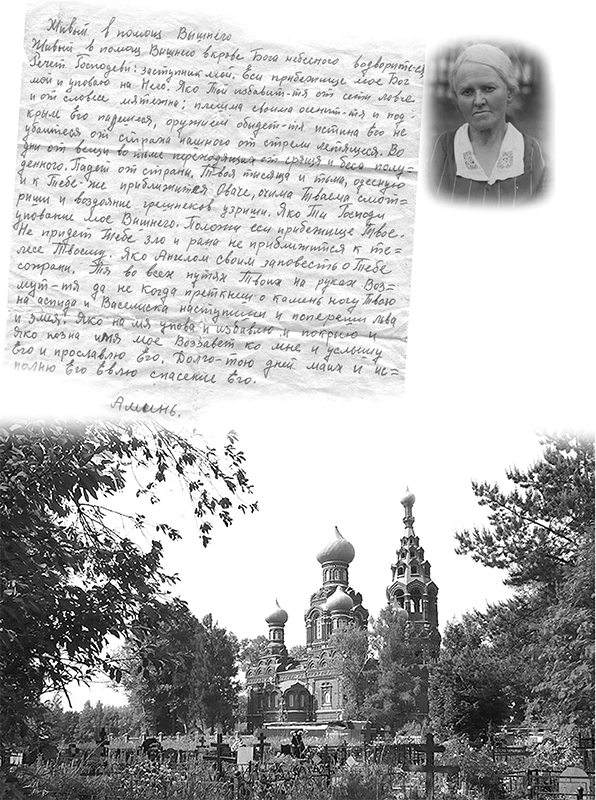 Живый в помощ Вышнего
Живый в помощ Вишнего вкрове Бога небесного водворитьея
Речет Господеви: заступник мой. Еси прибежище мое Бог
мой и уповаю на Него. Яко Той избавит-тя от сети ловче
и от словсе мятежна; плещма своима осенит-тя и под=
крым Его падешися, оружием обыдет-тя истина его не
убаишеся от страха нашного от стрели летящеся. Во
дни от вещи во тьме переходящия от сряща и беса полу=
денного. Падет от страни, Твоя тисяща и тьма, одесную
и к Тебе-же приближится Оваче, очима Тваема смот=
риши и воздояние грешнеков узриши. Яко Ти Господи
упование Мое Вишнего. Положи еси прибежище Твое.
Не придет Тебе зло и рана не приближится к те=
лесе Твоему. Яко Ангелом своим заповесть о Тебе
сохрани. Тя во всех путях Твоих на руках Воз=
мут-тя да не когда преткнеш о камень ногу Твою
на аспида и Василиска наступиши и попереши льва
и змея. Яко на мя упова и избавлю и покрыю и
Яко позна имя мое Воззавет ко мне и услышу
Его и прославлю Его. Долго-тою дней маих и ис=
полню Его Евлю спасение Его.
Аминь.